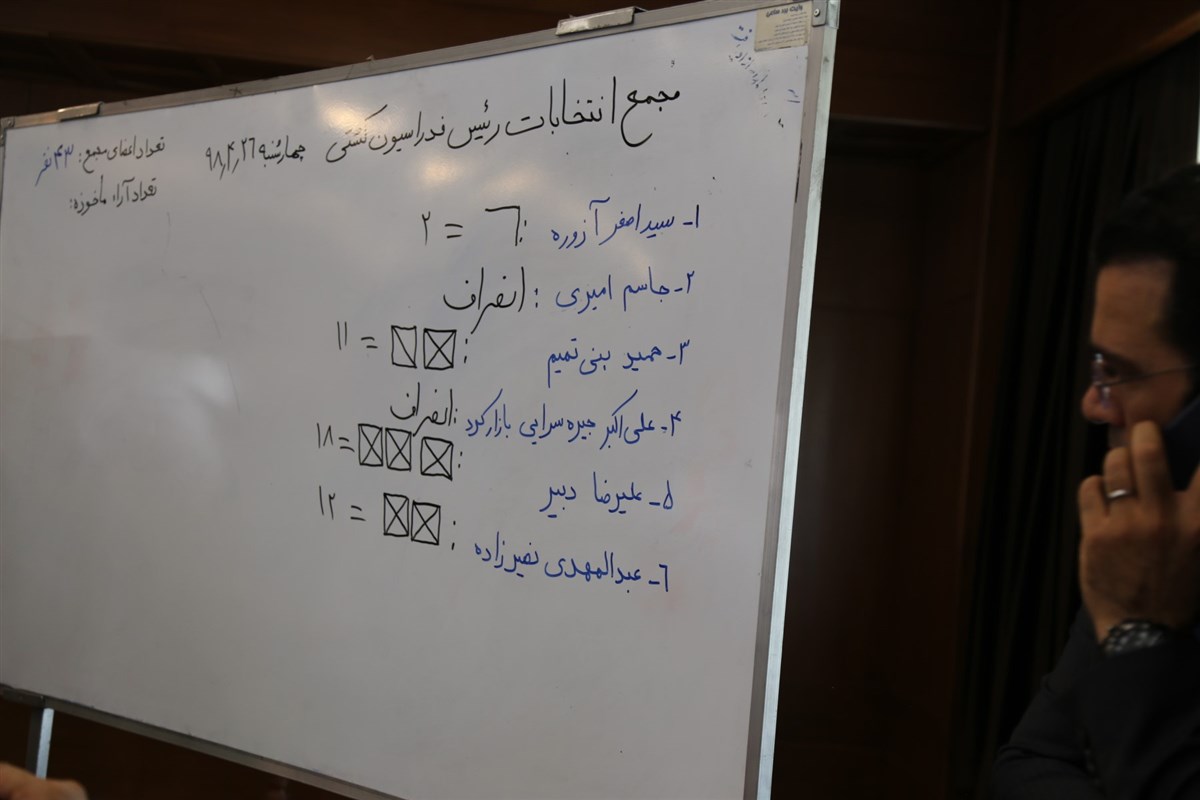 مجمع انتخابات رئیس فدراسیون کشتی چهارشنبه ۹۸٫۴٫۲۶
تعداد اعضای مجمع: ۴۳ نفر
تعداد آراء مأخوذه:
۱- سید اصغر آزوره : = ۲
۲- جاسم امیری : انصراف
۳- حمید بنی تمیم : = ۱۱
۴- علی اکبر جیره سرایی بازارکرد : انصراف
۵- علیرضا دبیر : = ۱۸
۶- عبدالمهدی نصیرزاده : = ۱۲